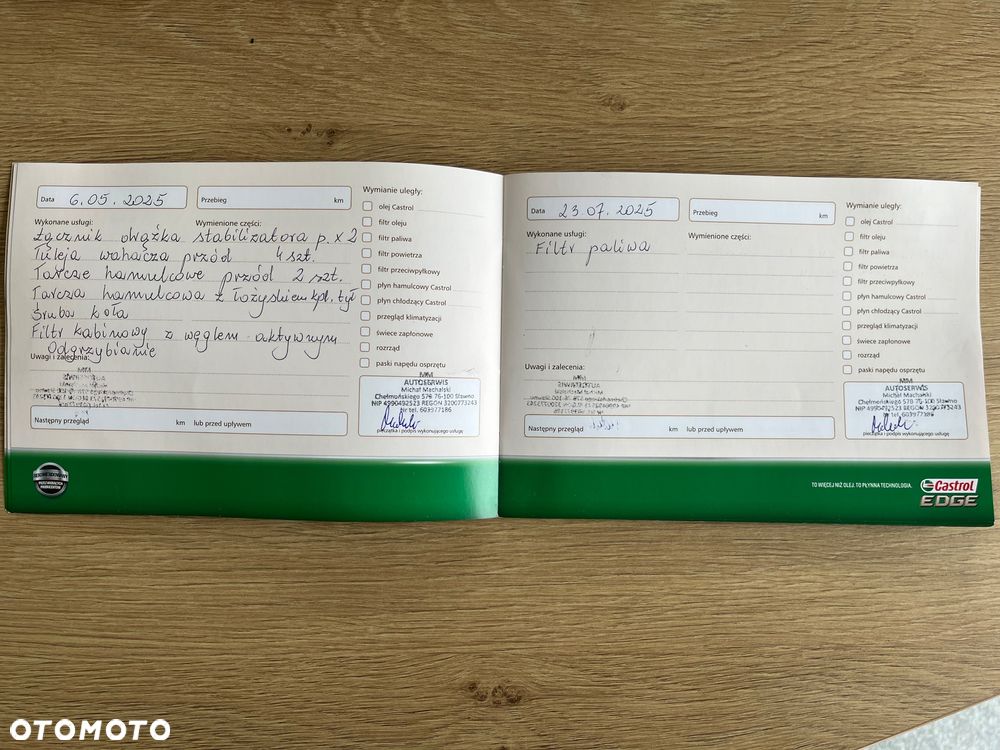 Data 6.05.2025
Przebieg km
Wykonane usługi: Wymienione części:
Łącznik drążka stabilizatora p. x 2
Tuleja wahacza przód 4 szt.
Tarcze hamulcowe przód 2 szt.
Tarcza hamulcowa z łożyskiem kpl. tył
Śruba koła
Filtr kabinowy z węglem aktywnym
Odgrzybianie
Uwagi i zalecenia:
Następny przegląd km lub przed upływem
Wymianie uległy:
olej Castrol
filtr oleju
filtr paliwa
filtr powietrza
filtr przeciwpyłkowy
płyn hamulcowy Castrol
płyn chłodzący Castrol
przegląd klimatyzacji
świece zapłonowe
rozrząd
paski napędu osprzętu
MM
AUTOSERWIS
Michał Machalski
Chełmońskiego 57B 76-100 Sławno
NIP 4990492523 REGON 3200773243
Nr tel. 603977186
pieczątka i podpis wykonującego usługę
Data 23.07.2025
Przebieg km
Wykonane usługi: Wymienione części:
Filtr paliwa
Uwagi i zalecenia:
Następny przegląd km lub przed upływem
Wymianie uległy:
olej Castrol
filtr oleju
filtr paliwa
filtr powietrza
filtr przeciwpyłkowy
płyn hamulcowy Castrol
płyn chłodzący Castrol
przegląd klimatyzacji
świece zapłonowe
rozrząd
paski napędu osprzętu
MM
AUTOSERWIS
Michał Machalski
Chełmońskiego 57B 76-100 Sławno
Nr tel. 603977186
pieczątka i podpis wykonującego usługę
TO WIĘCEJ NIŻ OLEJ. TO PŁYNNA TECHNOLOGIA.
Castrol
EDGE
OTOMOTO